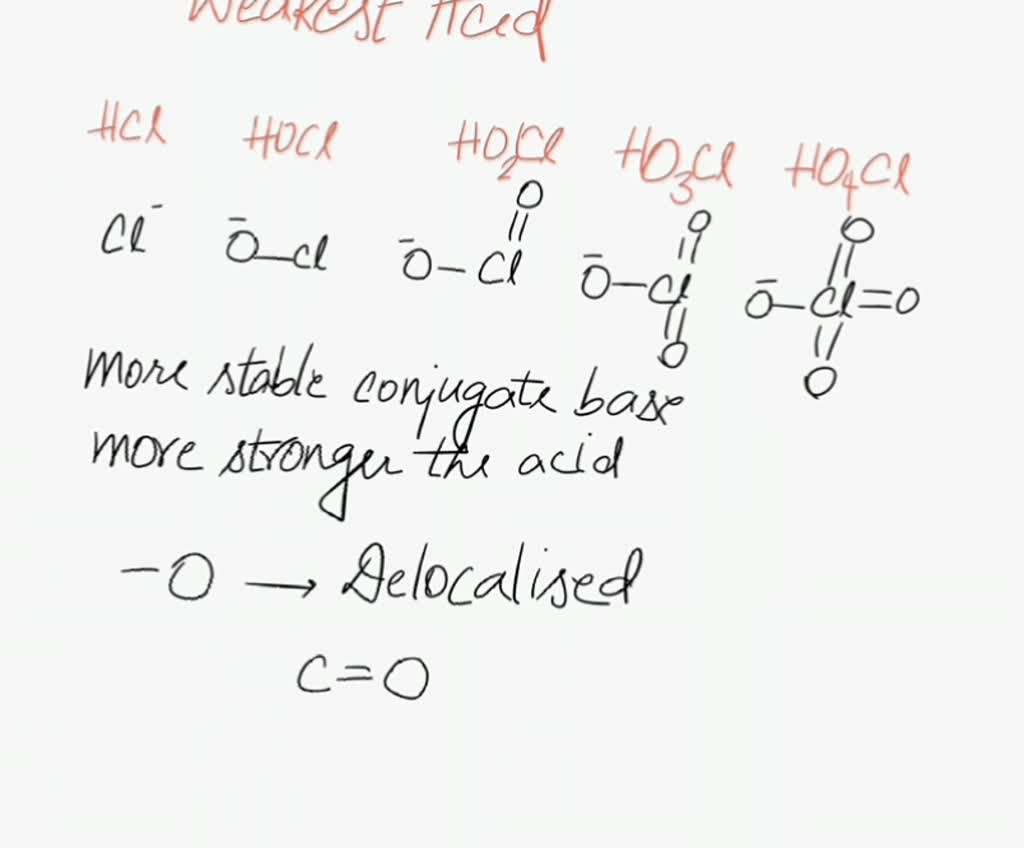 Weakest Acid
HCl HOCl HO2Cl HO3Cl HO4Cl
O O O
Cl⁻ Ō-Cl Ō-Cl Ō-Cl Ō-Cl=O
O O
more stable conjugate base
more stronger the acid
-O → Delocalised
C=O